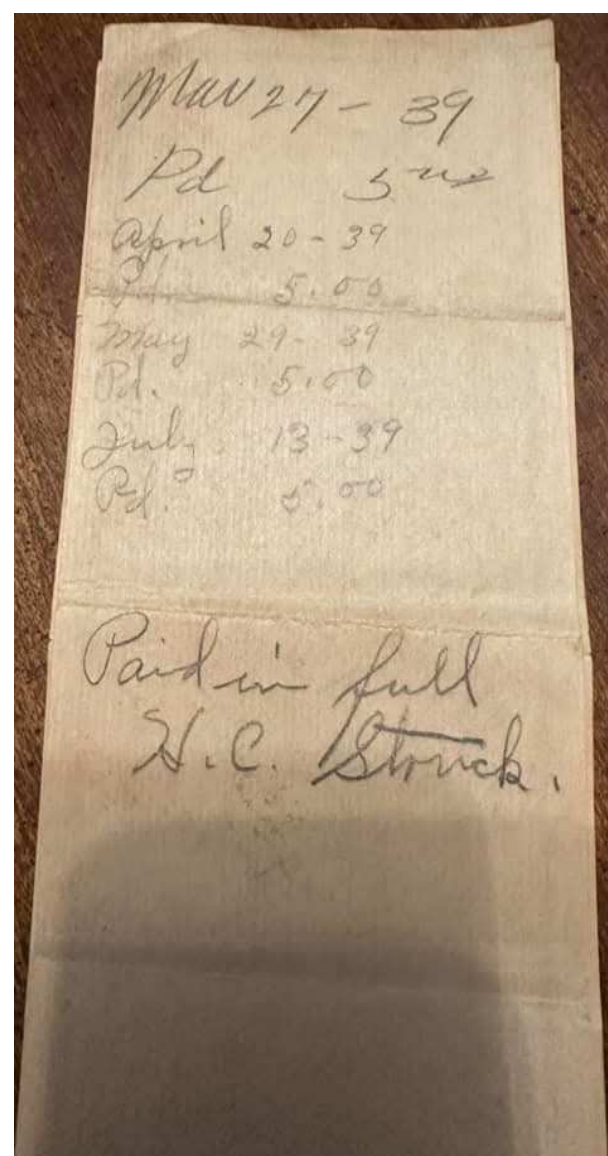 Mav 27 - 39
Pd 5
April 20 - 39
Pd. 5.00
May 29 - 39
Pd. 5.00
July 13 - 39
Pd. 5.00
Paid in full
H. C. Struck.